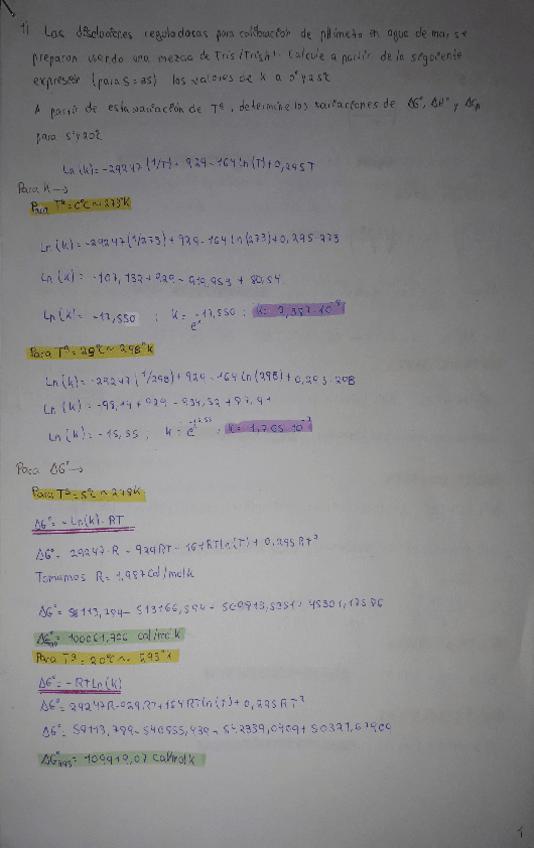 1) Las disoluciones reguladoras para calibración de pHmetro en agua de mar, se
preparan usando una mezcla de Tris/TrisH⁺. Calcule a partir de la siguiente
expresión (para S=35) los valores de K a 0° y 25°C
A partir de esta variación de Tª, determine las variaciones de ΔG°, ΔH° y ΔCp
para 5° y 20°C
Ln(k)= -29247 (1/T) + 929 - 164 ln(T) + 0,295T
Para K →
Para Tª= 0°C ~ 273°K
Ln(k)= -29247(1/273) + 929 - 164 ln(273) + 0,295·273
Ln(k)= -107,132 + 929 - 919,953 + 80,54
Ln(k)= -17,550 ; k= e^-17,550 ; k= ·10⁻⁸
Para Tª= 25°C ~ 298°K
Ln(k)= -29247(1/298) + 929 - 164 ln(298) + 0,295·298
Ln(k)= -98,14 + 929 - 934,32 + 87,91
Ln(k)= -15,55 ; k= e ; k= 1,765·10⁻⁷
Para ΔG° →
Para Tª= 5°C ~ 278K
ΔG°= -Ln(k)·RT
ΔG°= 29247·R - 929RT - 164RTln(T) + 0,295RT²
Tomamos R= 1,987 cal/molk
ΔG°= 58113,789 - 513166,594 - 509813,5351 + 45301,17586
ΔG°= cal/molk
Para Tª= 20°C ~ 293°K
ΔG°= -RTLn(k)
ΔG°= 29247R-929RT+164RTln(T) + 0,295RT²
ΔG°= 58113,789 - 540855,439 - 542339,0409 + 50321,67900
ΔG°₂₉₃= 109919,07 cal/molk
1